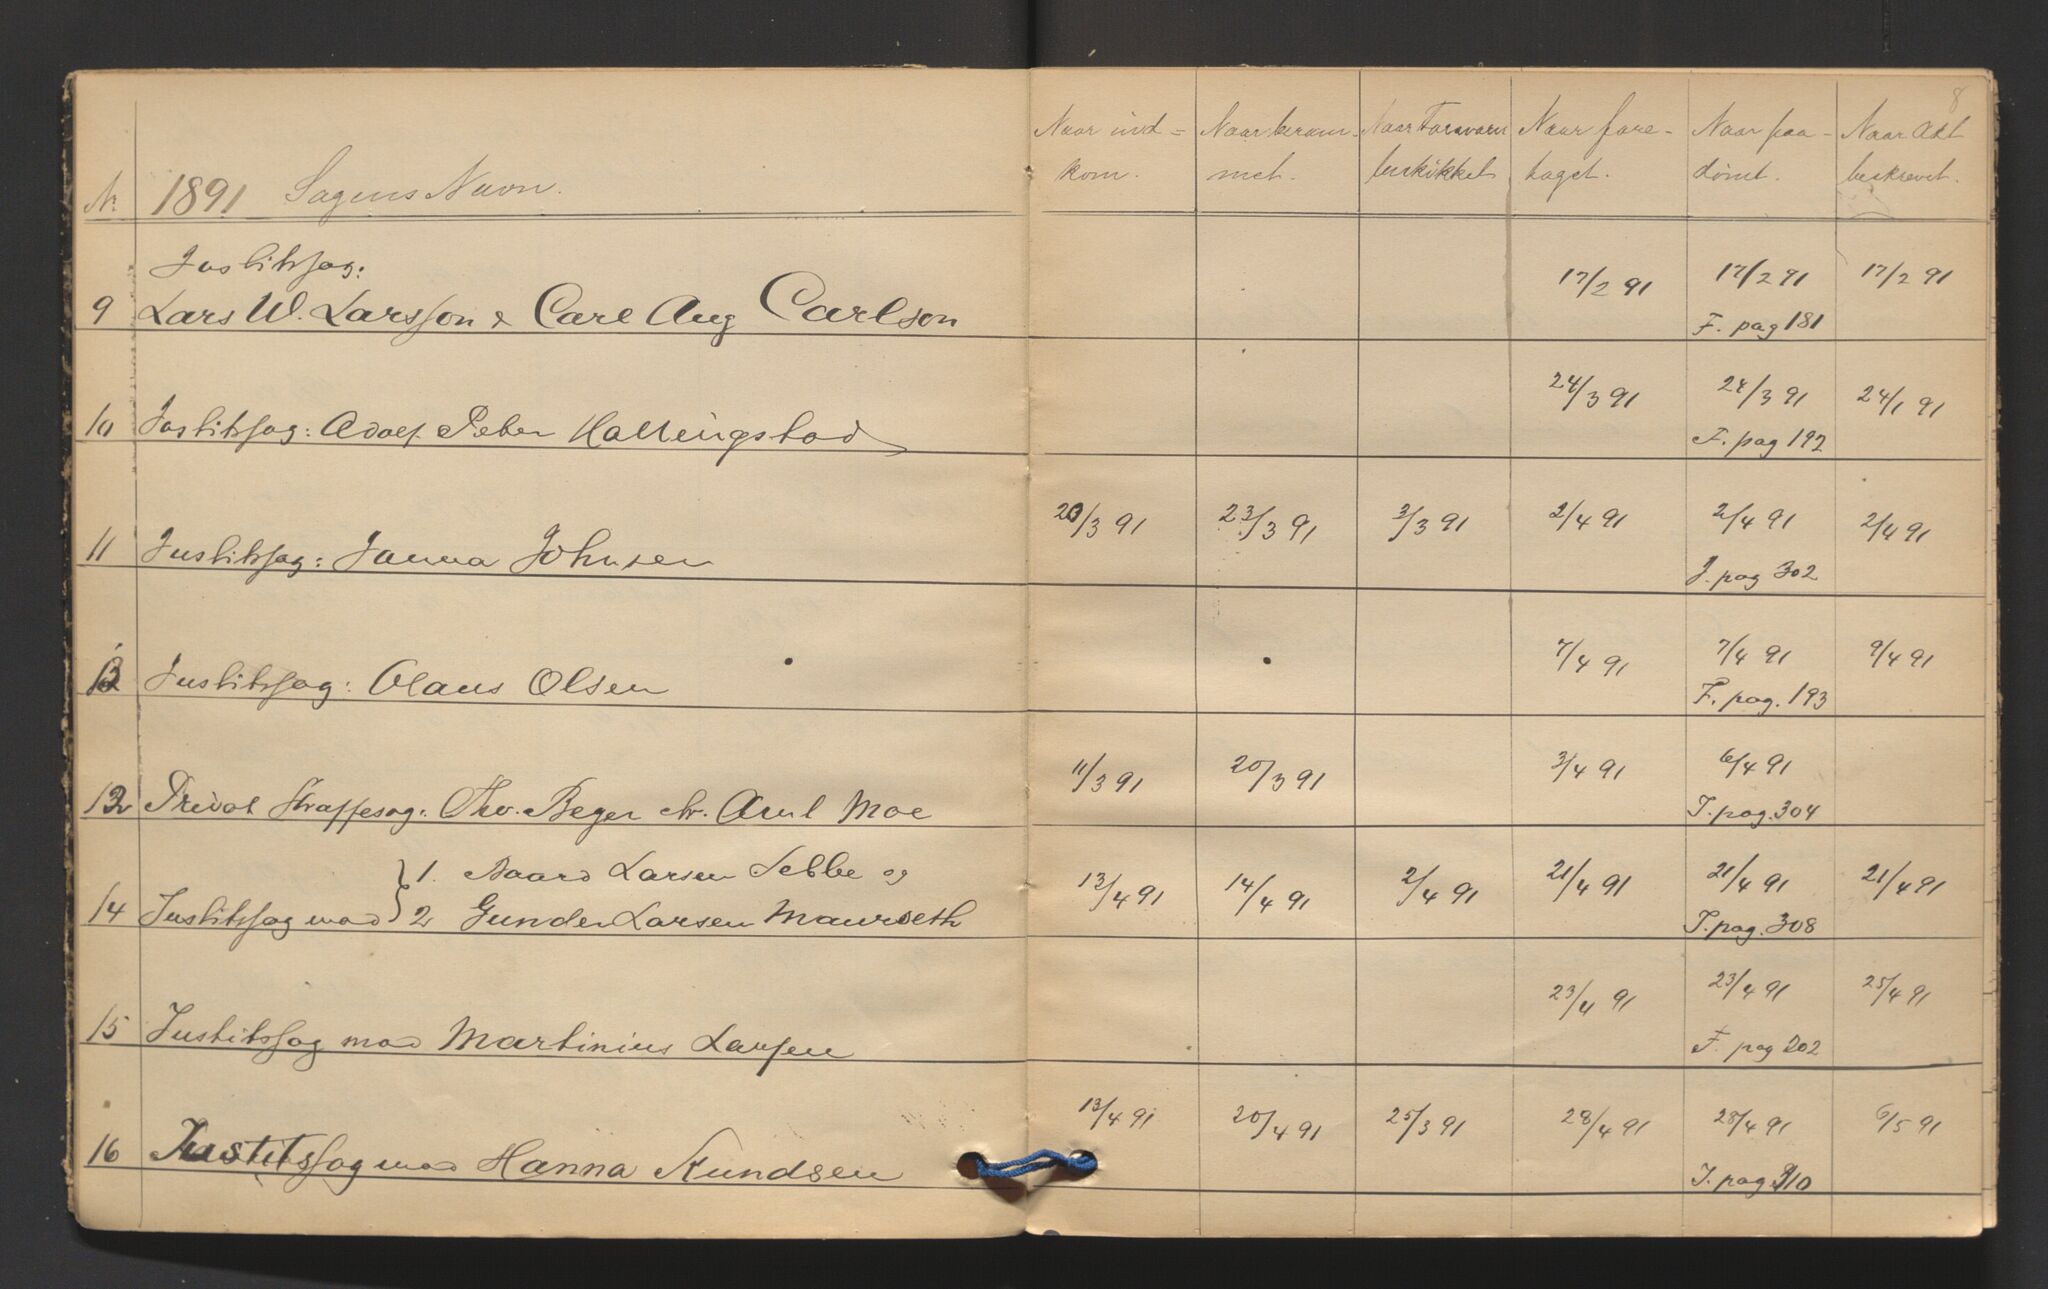 8
Nr. 1891 Sagens Navn. Naar ind= Naar beram- Naar Forsvarer Naar fore- Naar paa- Naar Akt
kom. met. beskikket taget. dömt. beskrevet.
Justitssag: 17/2 91 17/2 91 17/2 91
9 Lars W. Larsson & Carl Aug Carlson F. pag 181
24/3 91 24/3 91 24/1 91
10 Justitssag: Adolf Peter Hallingstad F. pag 192
20/3 91 23/3 91 3/3 91 2/4 91 2/4 91 2/4 91
11 Justitssag: Janna Johnsen J. pag 302
7/4 91 7/4 91 9/4 91
12 Justitssag: Olaus Olsen F. pag. 193
11/3 91 20/3 91 3/4 91 6/4 91
13 Privat Straffesag: Thv. Beyer ctr. Axel Moe J. pag. 304
1. Larsen Sebbe og 13/4 91 14/4 91 2/4 91 21/4 91 21/4 91 21/4 91
14 Justitssag mod 2 Gunder Larsen J. pag. 308
23/4 91 23/4 91 25/4 91
15 Justitssag mod Martinius Larsen F. pag 202
13/4 91 20/4 91 25/3 91 28/4 91 28/4 91 6/5 91
16 Justitssag mod Hanna Knudsen J. pag 310